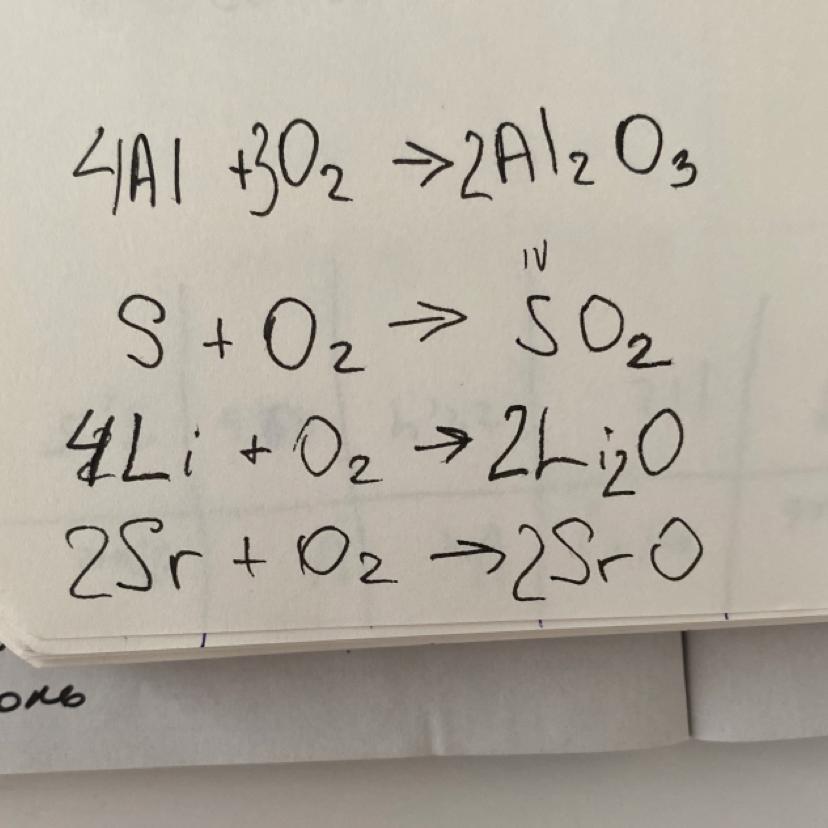 4Al +3O₂ → 2Al₂O₃
IV
S + O₂ → SO₂
4Li + O₂ → 2Li₂O
2Sr + O₂ → 2SrO